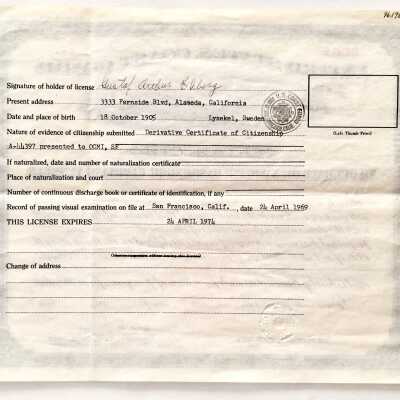 Signature of holder of license Gustaf Arthur
Present address 3333 Fernside Blvd, Alameda, California
Date and place of birth 18 October 1905 Lysekel, Sweden
(Left Thumb Print)
Nature of evidence of citizenship submitted Derivative Certificate of Citizenship
A-44397 presented to OCMI, SF
If naturalized, date and number of naturalization certificate
Place of naturalization and court
Number of continuous discharge book or certificate of identification, if any
Record of passing visual examination on file at San Francisco, Calif. , date 24 April 1969
THIS LICENSE EXPIRES 24 APRIL 1974
Change of address